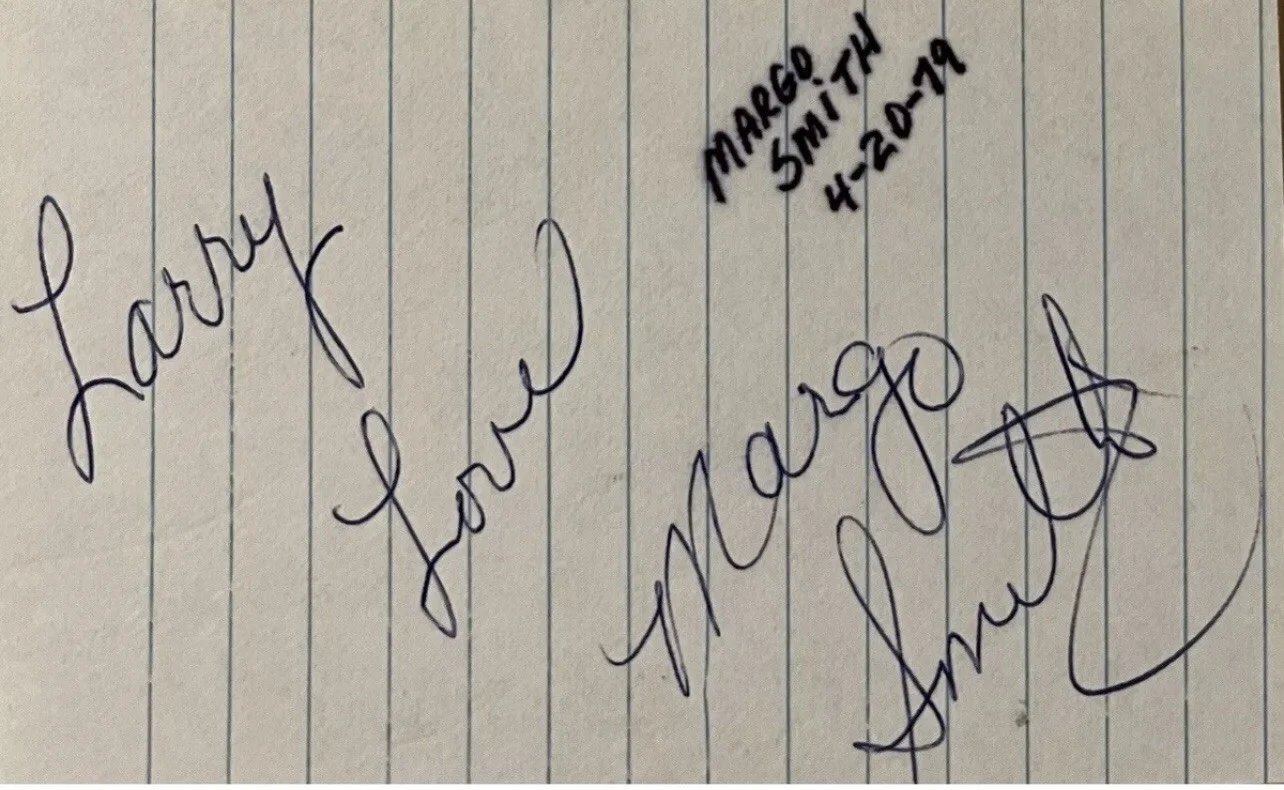 MARGO
SMITH
4-20-79
Larry
Love
Margo
Smith